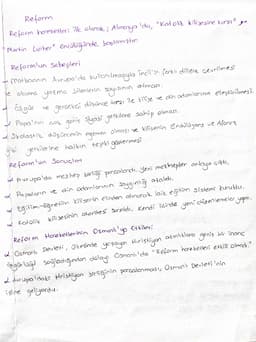 Reform
Reform hareketleri ilk olarak; Almanya'da, "Katolik kilisesine karşı"
"Martin Luther" öncülüğünde başlamıştır.
Reform'un Sebepleri
Matbaanın Avrupa'da kullanılmasıyla İncil'in farklı dillere çevrilmesi
ve okuma yazma sayısının artması.
Özgür ve gerçekci düşünce tarzı ile kilise ve din adamlarının eleştirilebilmesi.
Papa'nın çok geniş siyasi yetkilere sahip olması.
Skolastik düşüncenin egemen olması ve kilisenin Endülüjans ve Aforoz
gibi yetkilerine halkın tepki göstermesi
Reform'un Sonuçları
Avrupa'da mezhep birliği parçalandı, yeni mezhepler ortaya çıktı.
Papaların ve din adamlarının saygınlığı azaldı.
Eğitim-öğretim kilisenin elinden alınarak laik eğitim sistemi kuruldu.
Katolik kilisesinin otoritesi sarsıldı. Kendi içinde yeni düzenlemeler yaptı.
Reform Hareketlerinin Osmanlı'ya Etkileri
Osmanlı Devleti, ülkesinde yaşayan Hristiyan azınlıklara geniş bir inanç
özgürlüğü sağladığından dolayı Osmanlı'da "Reform hareketleri etkili olmadı."
Avrupa'daki Hristiyan birliğinin parçalanması, Osmanlı Devleti'nin
işine geliyordu.